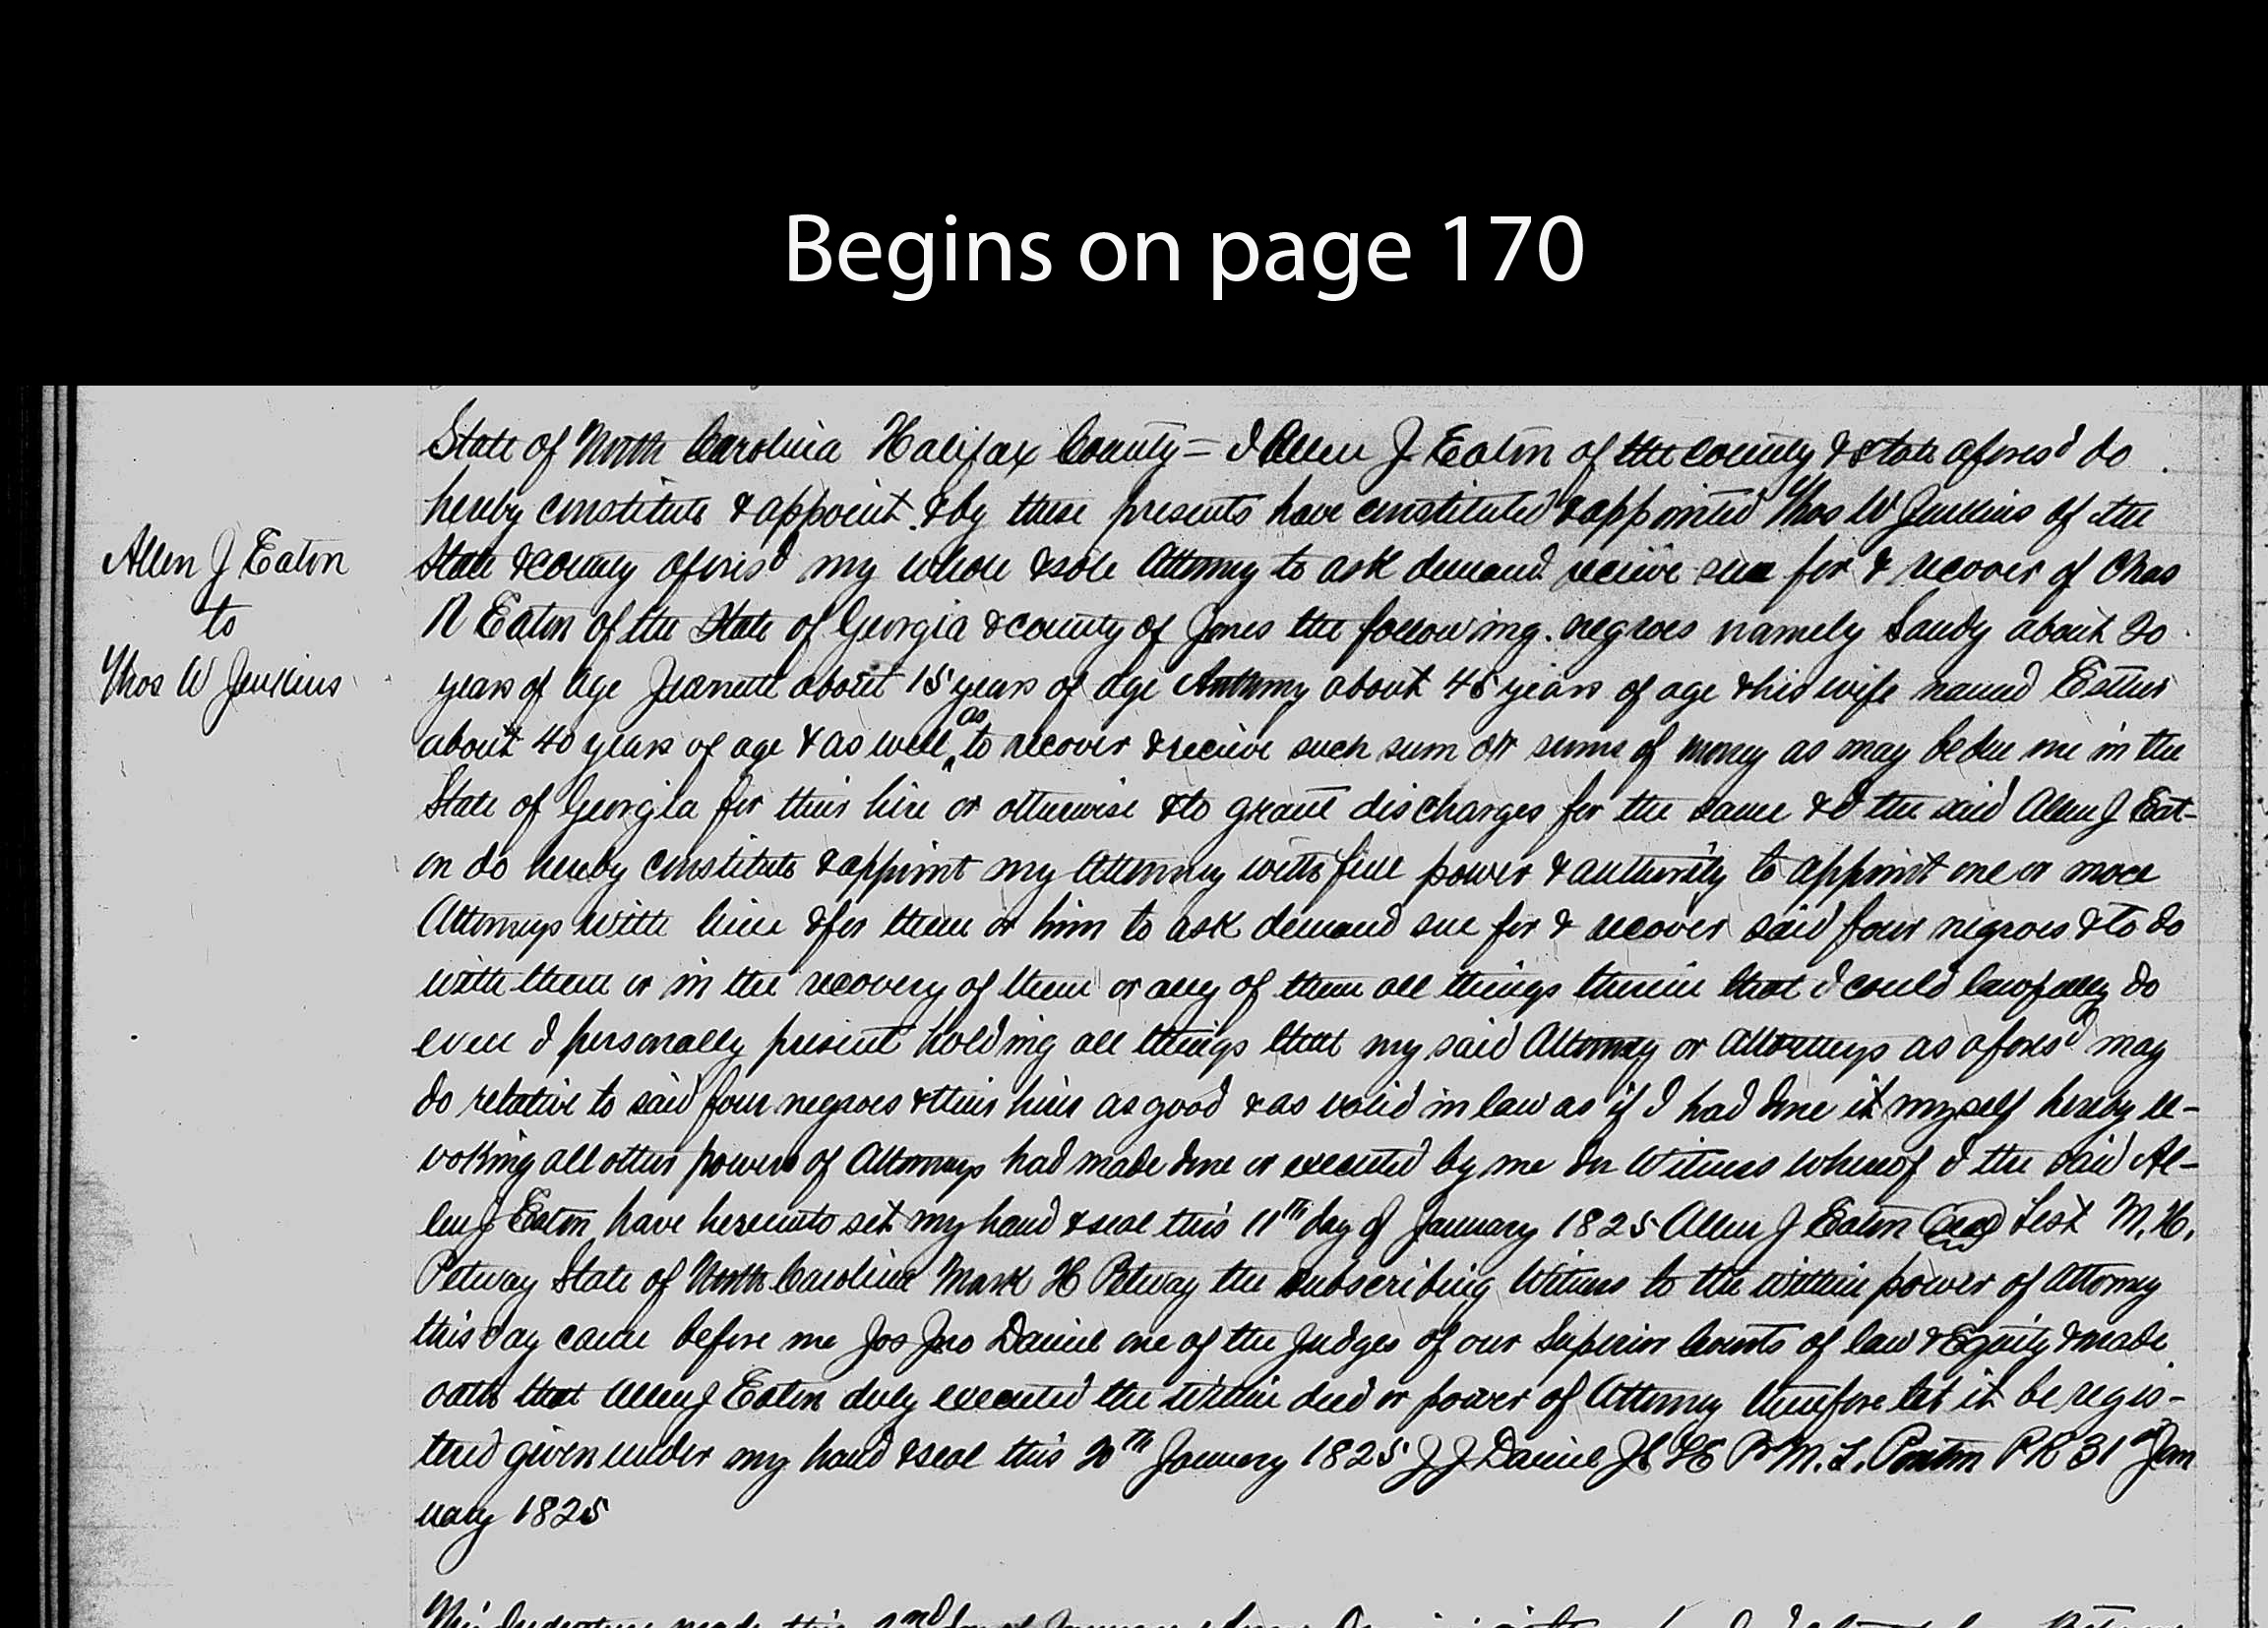 Begins on page 170
State of North Carolina Halifax County = I Allen J Eaton of the county & state afores'd do
hereby constitute & appoint & by these presents have constituted & appointed Thos W Jenkins of the
Allen J Eaton
to
Thos W Jenkins
State & county afores'd my whole & sole Attorney to ask demand recieve sue for & recover of Chas
N Eaton of the State of Georgia & county of Jones the following negroes namely Sandy about 20
years of age Jeanette about 15 years of age Anthony about 45 years of age & his wife named Esther
about 40 years of age & as well as to recover & recieve such sum or sums of money as may be due me in the
State of Georgia for their hire or otherwise & to grant discharges for the same & I the said Allen J Eat-
on do hereby constitute & appoint my Attorney with full power & authority to appoint one or more
Attorneys with him & for them or him to ask demand sue for & recover said four negroes & to do
with them or in the recovery of them or any of them all things therein that I could lawfully do
even I personally present holding all things that my said Attorney or Attorneys as afores'd may
do relative to said four negroes & their hire as good & as valid in law as if I had done it myself hereby re-
voking all other powers of Attorneys had made done or executed by me In Witness whereof I the said Al-
len J Eaton have hereunto set my hand & seal this 11th day of January 1825 Allen J Eaton Seal Test M. H.
Petway State of North Carolina Mark H Petway the subscribing Witness to the within power of Attorney
this day came before me Jos Jno Daniel one of the Judges of our Superior Courts of law & Equity & made
oath that Allen J Eaton duly executed the within deed or power of Attorney therefore let it be regis-
tered given under my hand & seal this 20th January 1825 J J Daniel M. L. Ponton PR 31st Jan
uary 1825
This Indenture made this 2nd day of January